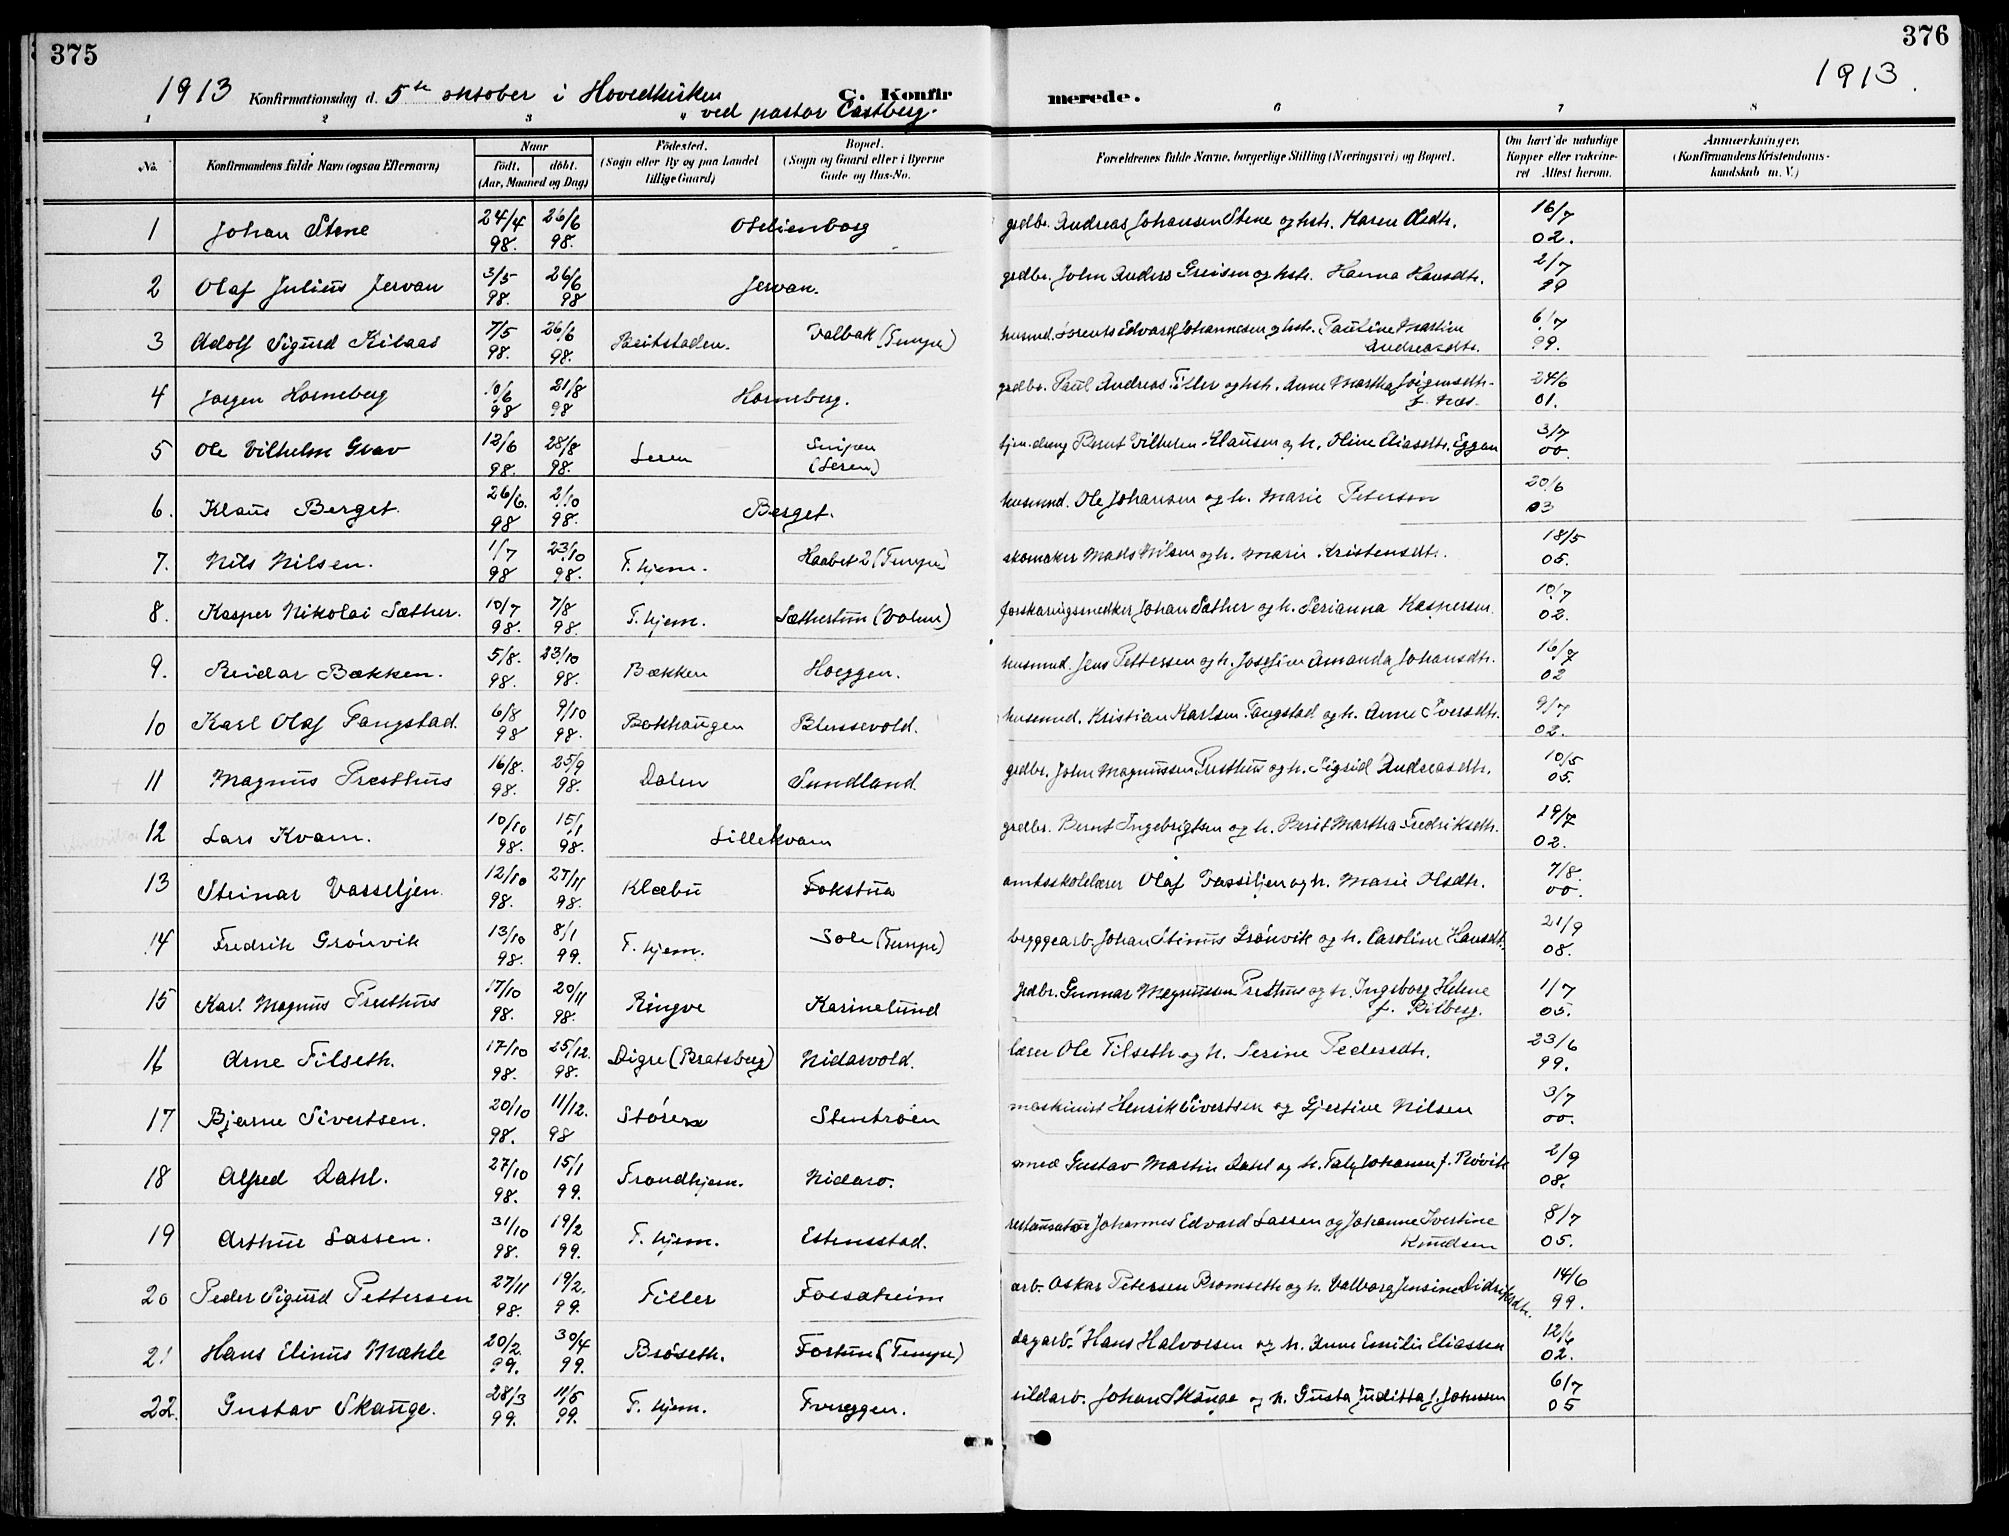 375
376
1913 Konfirmationsdag d. 5te oktober i Hovedkirken
ved pastor Castberg.
C. Konfirmerede.
1913.
1 2 3 4 6 7 8
No. | Konfirmandens fulde Navn (ogsaa Efternavn) | Naar født, døbt. (Aar, Maaned og Dag) | Fødested. (Sogn eller By og paa Landet tillige Gaard) | Bopæl. (Sogn og Gaard eller i Byerne Gade og Hus-No. | Forældrenes fulde Navne, borgerlige Stilling (Næringsvei) og Bopæl. | Om havt de naturlige Kopper eller vakcineret Attest herom. | Anmærkninger. (Konfirmandens Kristendomskundskab m. V.)
1 Johan Stene 24/4 98. 26/6 98. Otilienborg grdbr. Andreas Johansen Stene og hst. Karen Olsdtr. 16/7 02.
2 Olaf Julius Jervan 3/5 98. 26/6 98 Jervan. grdbr. John Anders Greisen og hst. Hanna Hansdtr. 2/7 99
3 Adolf Sigurd Kilaas 7/5 98. 26/6 98. Beitstaden. Valbak (Tempe) husmd. Lorents Edvard Johannesen og hst. Pauline Martine Andreasdtr. 6/7 99.
4 Jørgen Horneberg 10/6 98 21/8 98 Horneberg. grdbr. Paul Andreas Tiller og hst. Anne Martha Jørgensdtr. f. Næs. 24/6 01.
5 Ole Vilhelm Grav 12/6 98. 28/8 98. Leren (Leren) tjen.dreng Bernt Vilhelm Klausen og h. Oline Eliasdtr. Eggan 3/7 00.
6. Klaus Berget. 26/6. 98 2/10 98. Berget. husmd. Ole Johansen og h. Marie Peterson 20/6 03
7. Nils Nilsen. 1/7 98 23/10 98. T.hjem. Haabet 2 (Tempe) skomaker Mads Nilsen og h. Marie Kristensdtr. 18/5 05.
8. Kasper Nikolai Sæther. 10/7 98. 7/8 98. T.hjem. Sæthertun (Valene) Johan Sæther og h. Serianna Kaspersen. 10/7 02.
9. Reidar Bækken. 5/8. 98. 23/10 98. Bækken Hoeggen. husmd. Jens Pettersen og h. Josefine Amanda Johansdtr. 16/7 02
10 Karl Olaf Tangstad. 6/8 98 9/10 98. Bakhaugen Blussevold. husmd. Kristian Karlsen Tangstad og h. Anne Iversdtr. 9/7 02.
11 Magnus Presthus 16/8. 98. 25/9 98. Dalen Sundland. grdbr. John Magnussen Presthus og h. Sigrid Andreasdtr. 10/5 05.
12 Lars Kvam. 10/10 98. 15/1 98. Lillekvam grdbr. Bernt Ingebrigtsen og h. Berit Martha Fredriksdtr. 29/7 02.
13 Steinar Vasseljen. 12/10 98. 27/11 98. Klæbu Fokstua amtsskolelærer Olaf Vasseljen og h. Marie Olsdtr. 7/8. 00.
14 Fredrik Grønvik 13/10 98. 8/1 99. T. hjem. Sole (Tempe) bryggearb. Johan Stinus Grønvik og h. Caroline Hansdt. 21/9 08.
15 Karl Magnus Presthus 17/10 98. 20/11 98. Ringve Karinelund grdbr. Gunnar Magnussen Presthus og h. Ingeborg Helene f. Rilberg. 1/7 05.
16 Arne Tilseth. 17/10 98. 25/12. 98. Digre (Bratsberg) Nidarvold. lærer Ole Tilseth og h. Serine Pedersdtr. 23/6 99.
17 Bjarne Sivertsen. 20/10 98. 11/12. 98 Støren Stentrøen maskinist Henrik Sivertsen og Gjertine Nilsen 3/7 00.
18 Alfred Dahl. 27/10 98. 15/1 99. Trondhjem. Nidaro. smed Gustav Martin Dahl og h. Johanne f. Røvik 2/9 08.
19 Arthur Lassen. 31/10 98. 19/2 99. T. hjem. Estenstad. restauratør Johannes Edvard Lassen og Johanne Ivertine Knudsen 8/7 05.
20 Peder Sigurd Pettersen 27/11 98. 19/2. 99. Tiller Fossheim arb. Oskar Petersen Bromseth og h. Valborg Jensine Didriksdtr. 14/6 99.
21 Hans Elinus Mæhle 20/2. 99. 30/4 99. Brøseth. Fortuna (Tempe) dagarb. Hans Halvorsen og h. Anne Emilie Eliassen 12/6 02.
22. Gustav Skauge. 28/3 99. 11/5 99. T. hjem. Tvereggen. sildarb. Johan Skauge og h. Gusta Juditta f. Johnsen 6/7 05